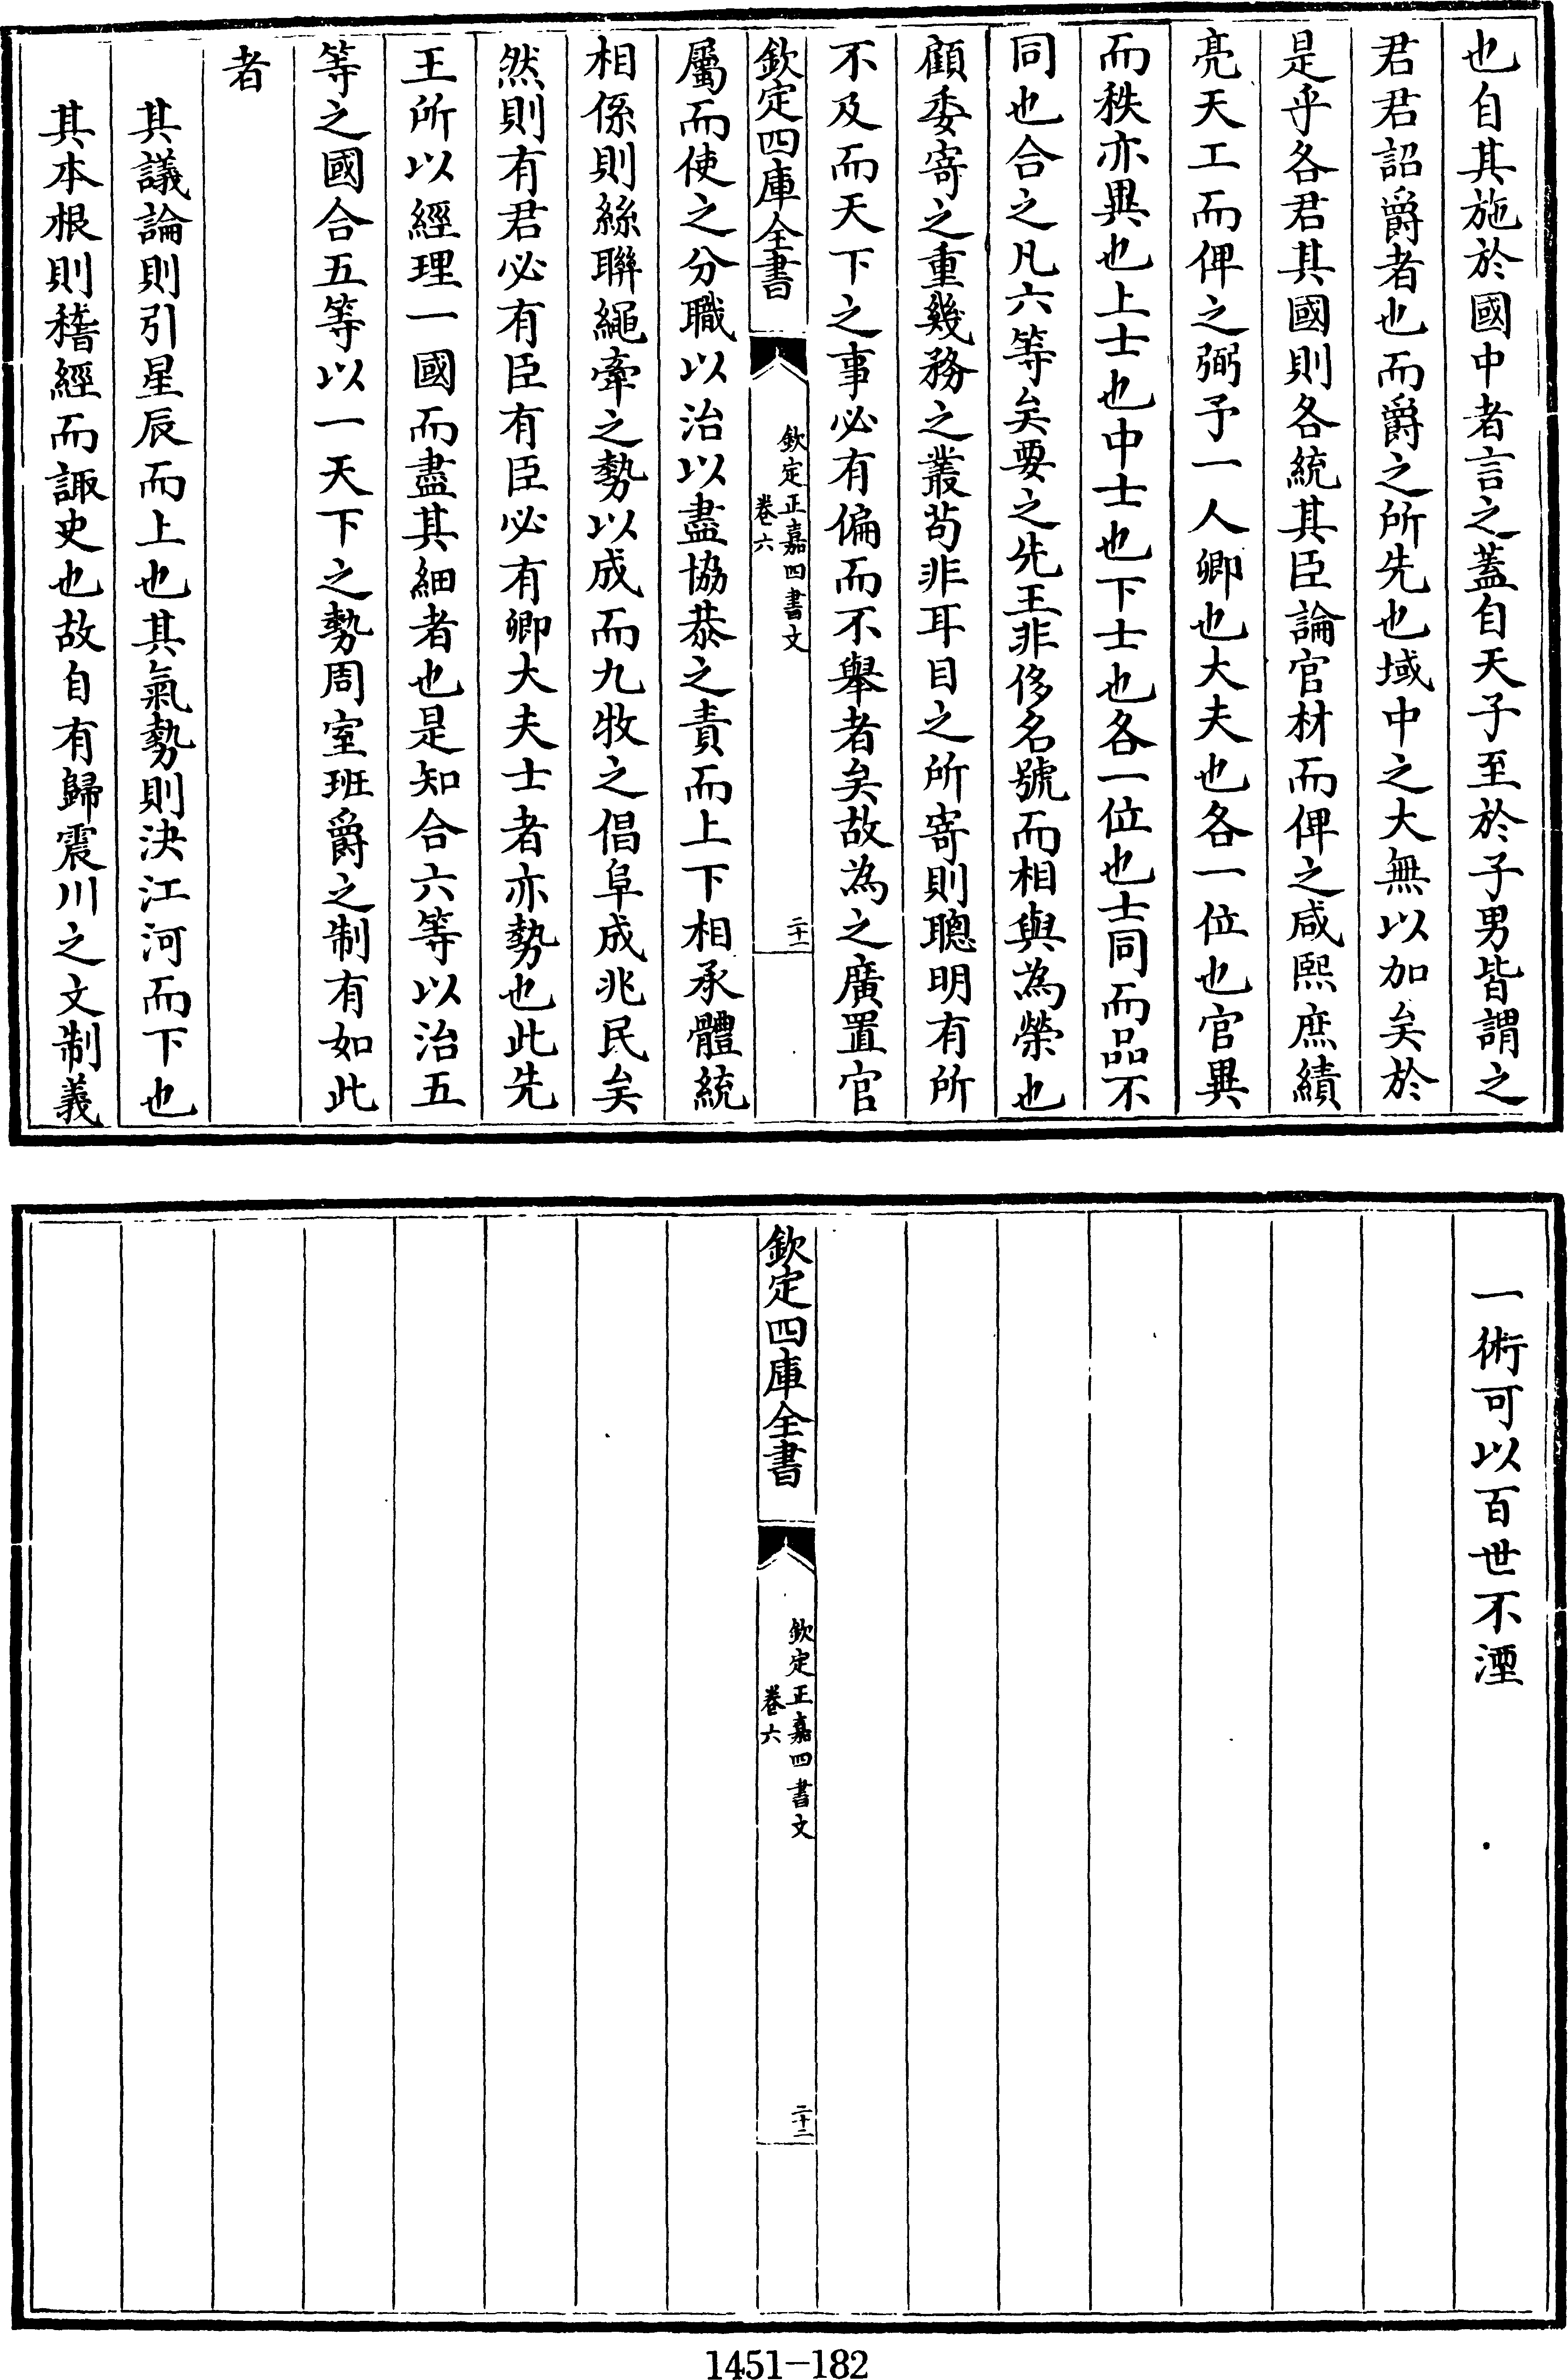 也自其施於國中者言之蓋自天子至於子男皆謂之
君君詔爵者也而爵之所先也域中之大無以加矣於
是乎各君其國則各統其臣論官材而俾之咸熙庶績
亮天工而俾之弼予一人卿也大夫也各一位也官異
而秩亦異也上士也中士也下士也各一位也士同而品不
同也合之凡六等矣要之先王非侈名號而相與為榮也
顧委寄之重幾務之叢茍非耳目之所寄則聰明有所
不及而天下之事必有偏而不舉者矣故為之廣置官
欽定四庫全書
欽定正嘉四書文
卷六
二十一
屬而使之分職以治以盡協恭之責而上下相承體統
相係則絲聯繩牽之勢以成而九牧之倡阜成兆民矣
然則有君必有臣有臣必有卿大夫士者亦勢也此先
王所以經理一國而盡其細者也是知合六等以治五
等之國合五等以一天下之勢周室班爵之制有如此
者
其議論則引星辰而上也其氣勢則決江河而下也
其本根則稽經而諏史也故自有歸震川之文制義
一術可以百世不湮
欽定四庫全書
欽定正嘉四書文
卷六
二十二
1451-182